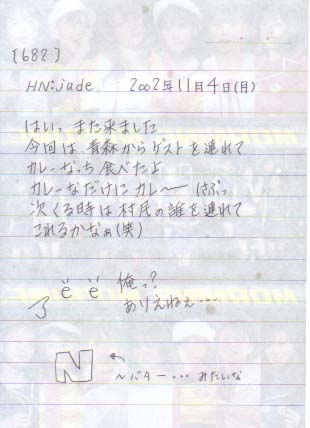 [682]
HN:jade 2002年11月4日(月)
はいっ また来ました
今回は 青森からゲストを連れて
カレーなっち食べたよ
カレーなだけに カレ〜 (さぶっ
次くる時は 村民の誰を連れて
これるかなぁ(笑)
俺っ?
ありえねぇ・・・
N
Nバター・・・みたいな